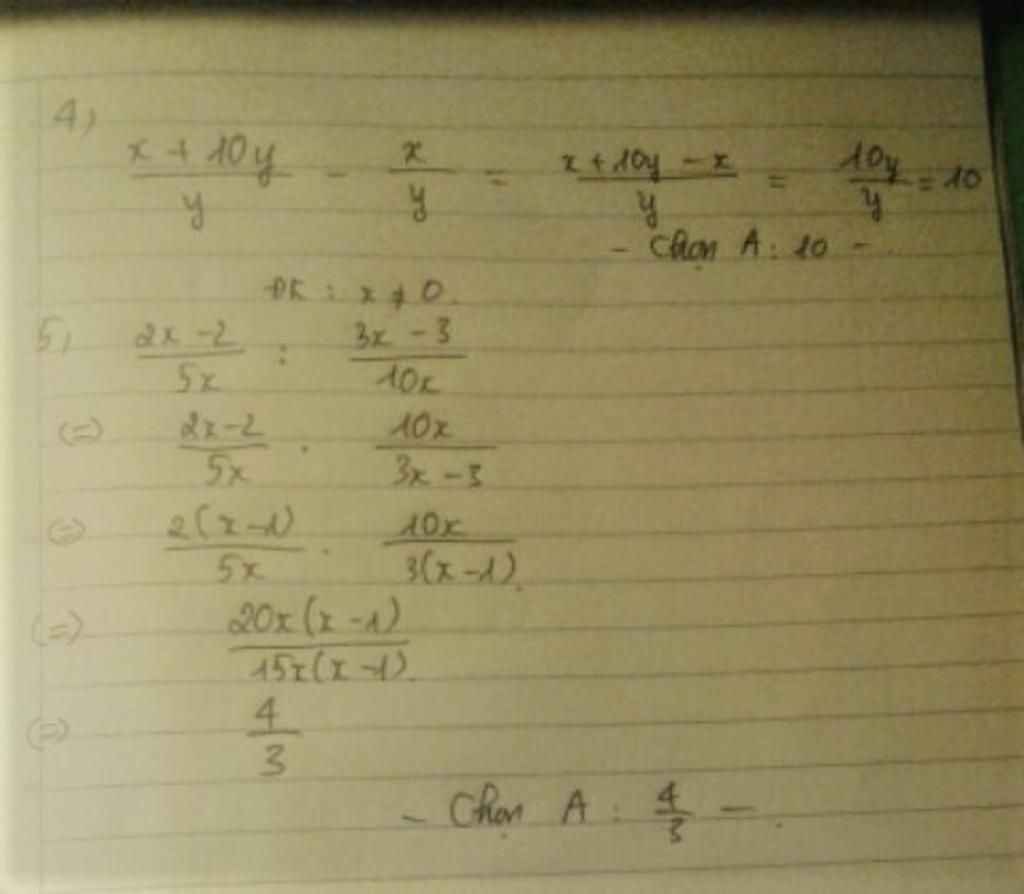 4,
x + 10y / y - x / y = x + 10y - x / y = 10y / y = 10
- Chọn A : 10 -
ĐK : x ≠ 0.
5, 2x - 2 / 5x : 3x - 3 / 10x
(=) 2x - 2 / 5x . 10x / 3x - 3
(=) 2(x - 1) / 5x . 10x / 3(x - 1)
(=) 20x(x - 1) / 15x(x - 1)
(=) 4 / 3
- Chọn A : 4 / 3 -